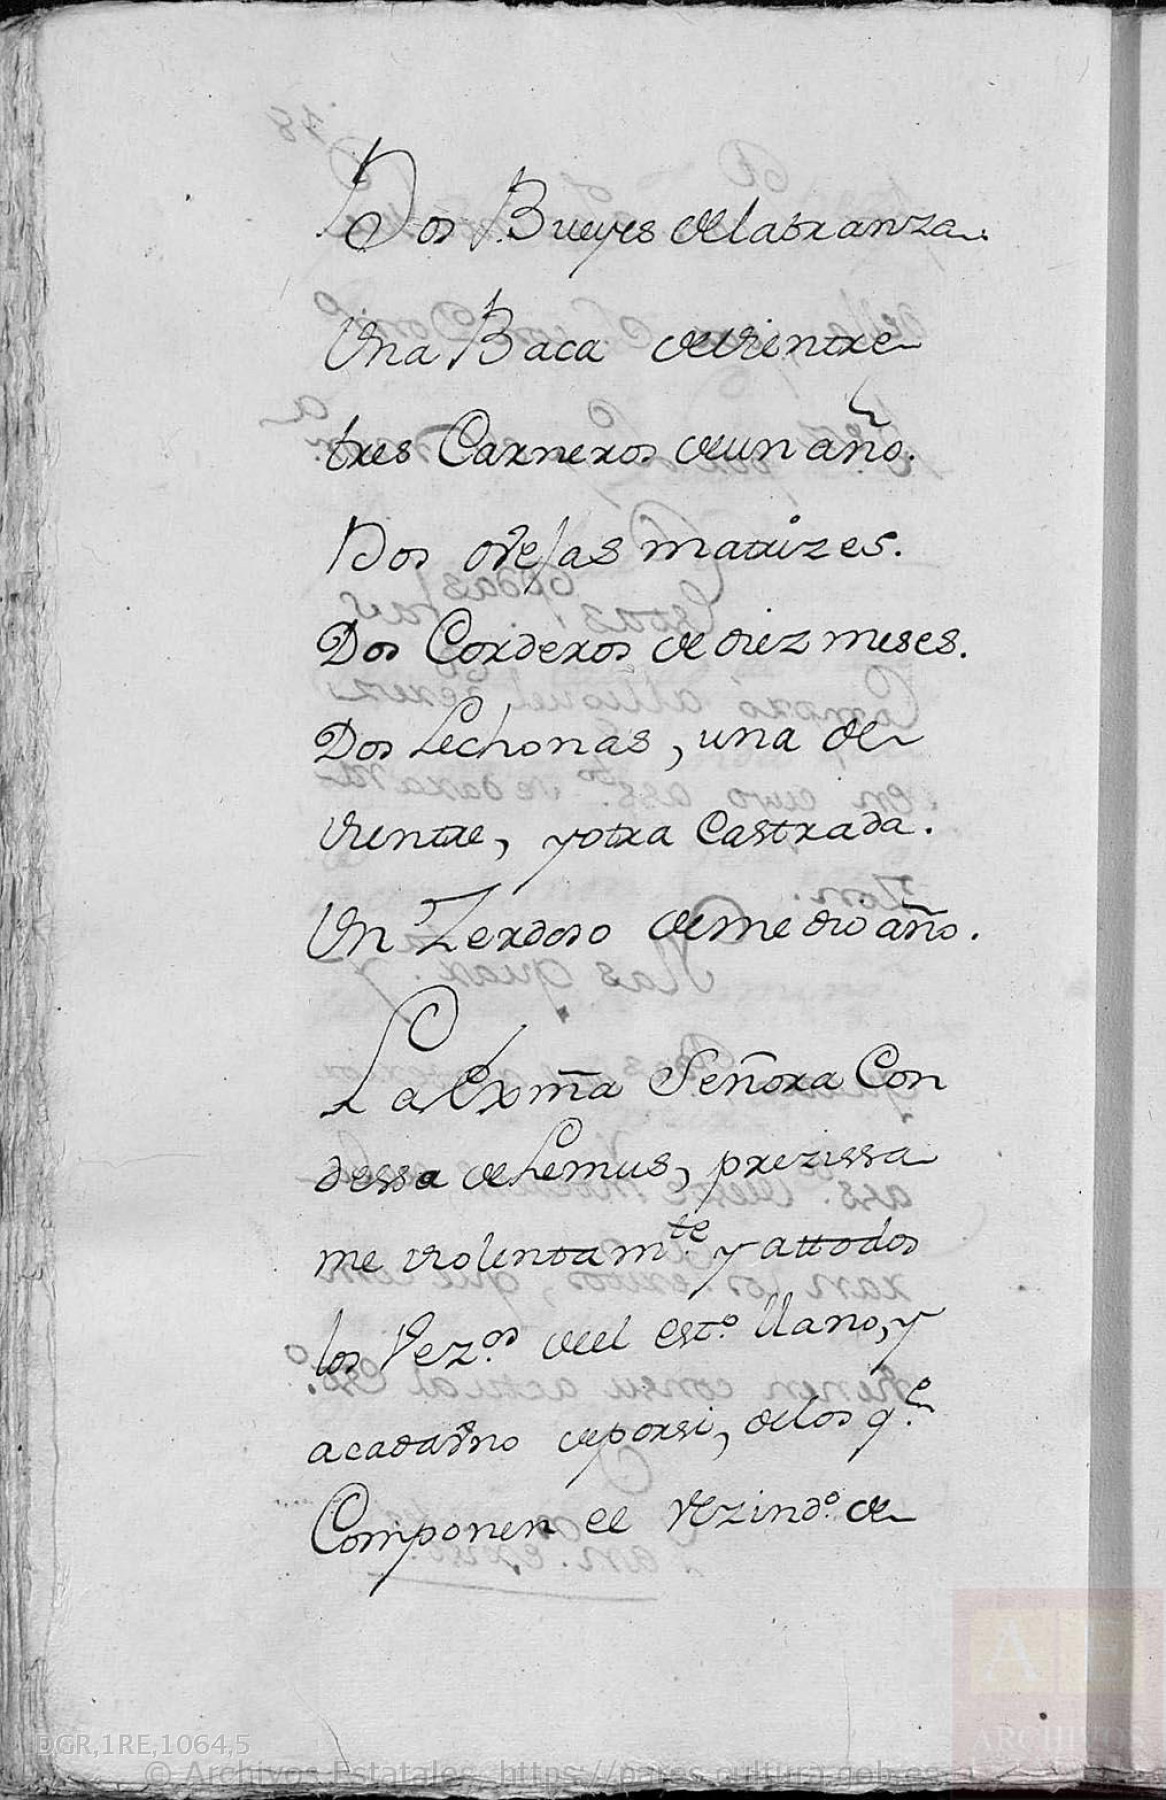 Dos Bueyes de labranza.
Una Baca de vientre
tres Carneros de un año.
Dos ovejas matrizes.
Dos Corderos de diez meses.
Dos Lechonas, una de
vientre, y otra Castrada.
Un Zerdoso de medio año.
La Exma Señora Con
dessa de Lemus, prezissa
me violentamte. y attodos
los Vezos. del esto. llano, y
acadavno de por si, de los qe.
Componen el vezindo. de
DGR,1RE,1064,5
© Archivos Estatales, https://pares.cultura.gob.es
AE
ARCHIVOS